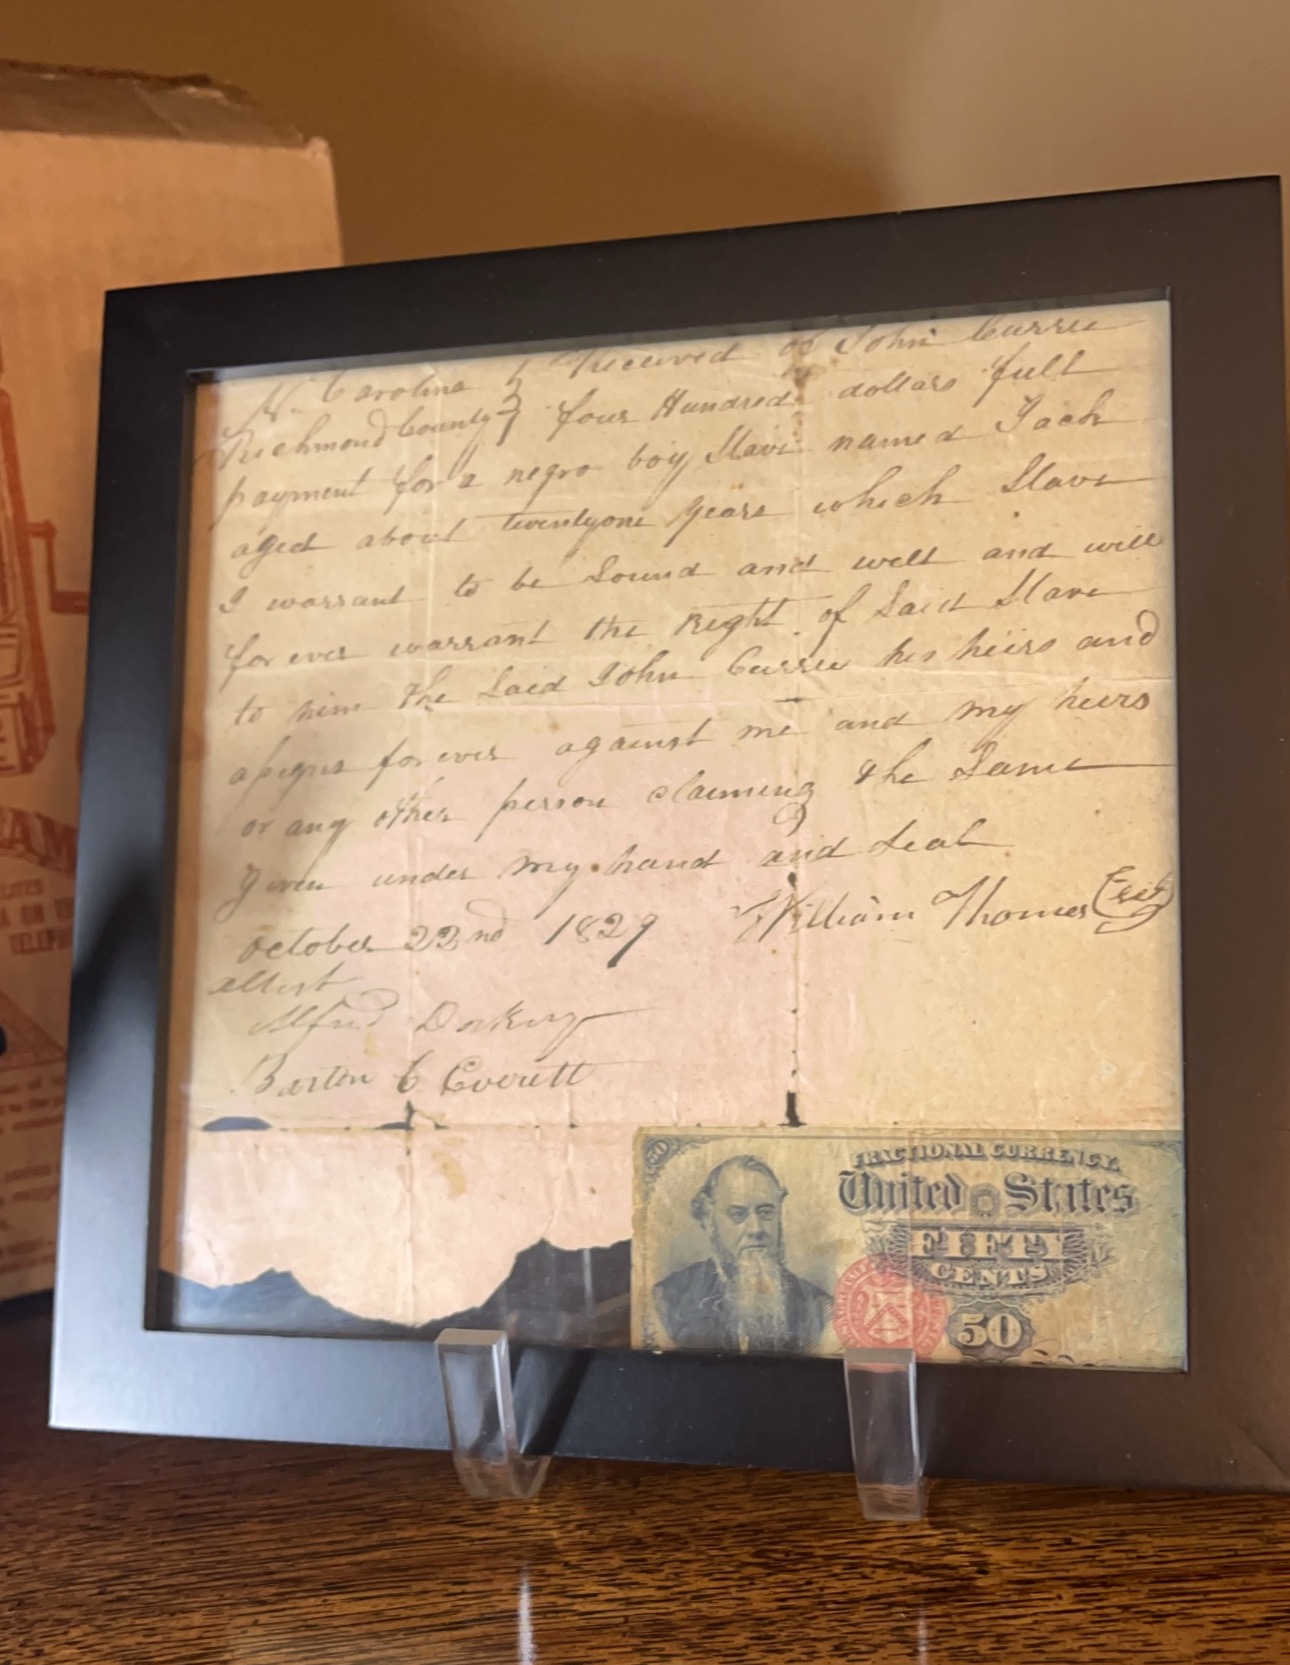 N. Carolina } Received of John Currie
Richmond County } four Hundred dollars full
payment for a negro boy Slave named Jack
aged about twentyone years which Slave
I warrant to be Sound and well and will
for ever warrant the Right of Said Slave
to him the Said John Currie his heirs and
assigns for ever against me and my heirs
or any other person claiming the Same
Given under my hand and Seal
October 22nd 1829 William Thomas (Seal)
attest
Alfred Dockery
Barton C Everett
50
FRACTIONAL CURRENCY.
United States
FIFTY
CENTS
50